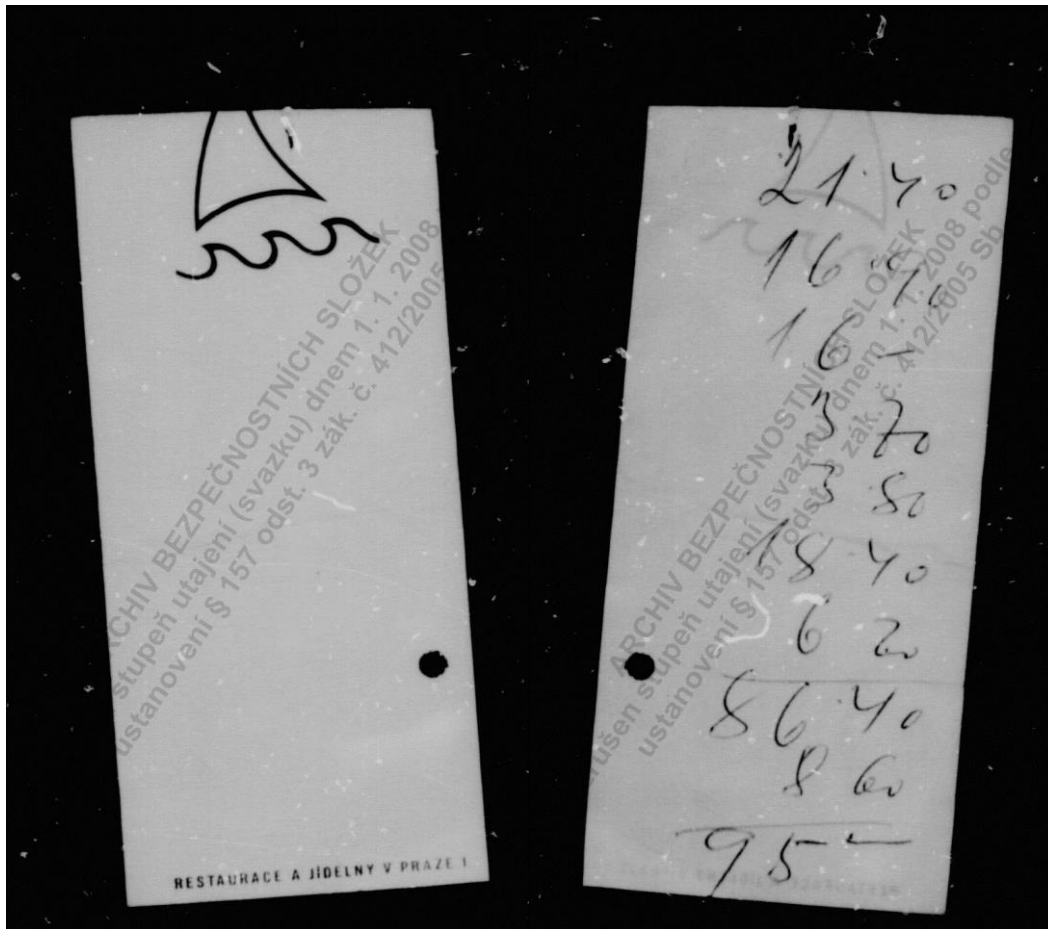 RCHIV BEZPEČNOSTNÍCH SLOŽEK
stupeň utajení (svazku) dnem 1. 1. 2008
ustanovení § 157 odst. 3 zák. č. 412/2005
RESTAURACE A JÍDELNY V PRAZE 1
ARCHIV BEZPEČNOSTNÍCH SLOŽEK
rušen stupeň utajení (svazku) dnem 1. 1. 2008 podle
ustanovení § 157 odst. 3 zák. č. 412/2005 Sb
21.40
16.90
16 –
3 70
3.80
18 40
6 20
86.40
8 60
95 –